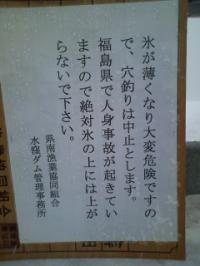 氷が薄くなり大変危険ですの
で、穴釣りは中止とします。
福島県で人身事故が起きてい
ますので絶対氷の上には上が
らないで下さい。
県南漁業協同組合
水窪ダム管理事務所